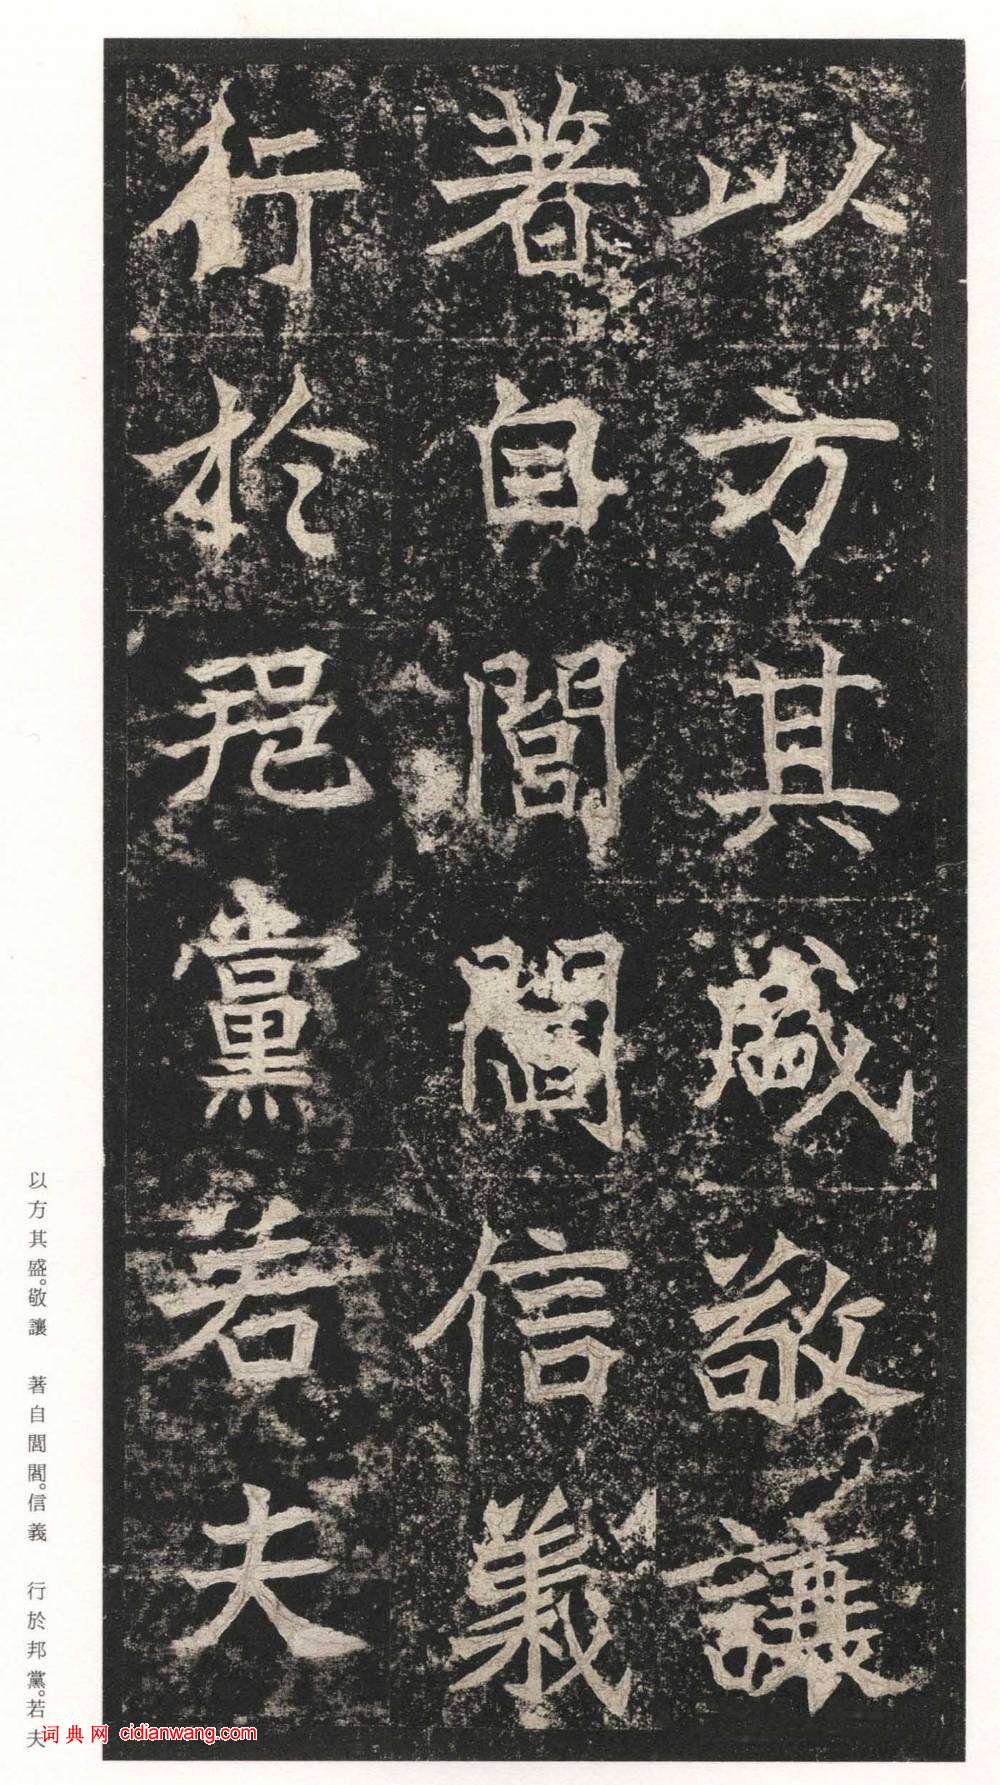 以方其盛敬讓
著自閭閻信義
行於邦黨若夫
以方其盛。敬讓 著自閭閻。信義 行於邦黨。若夫
词典网 cidianwang.com